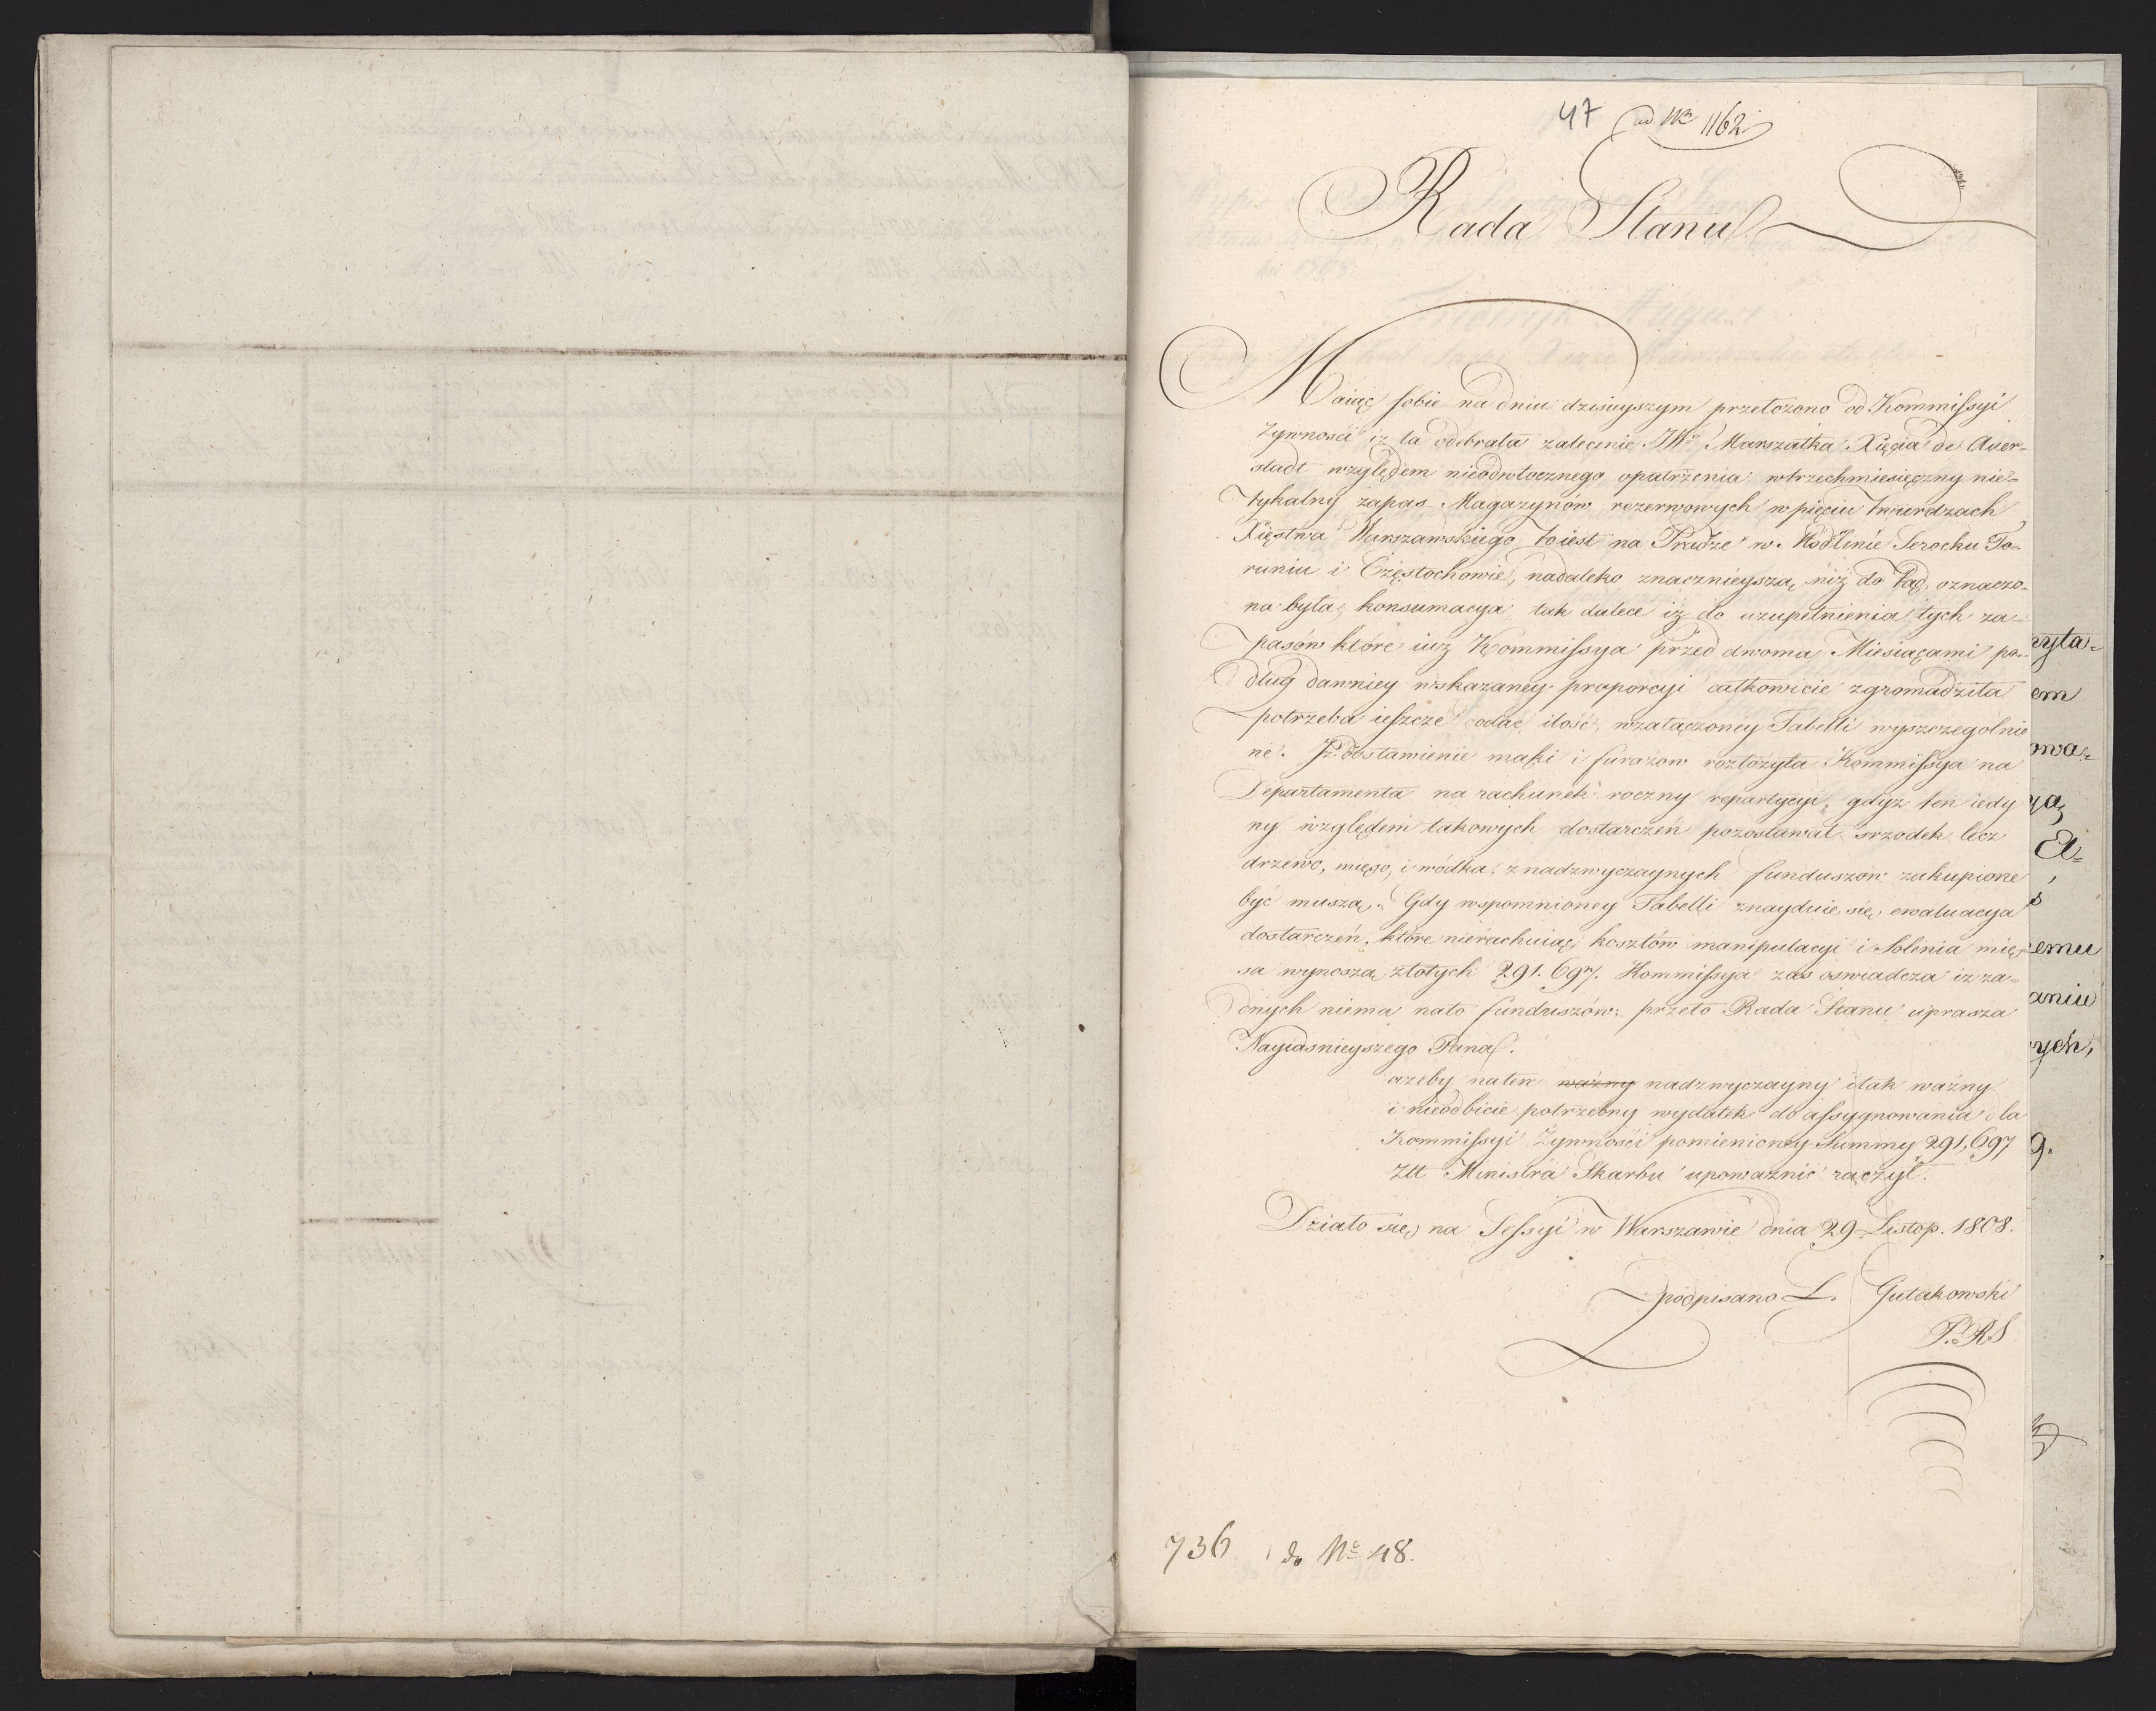 47 ad Nr̲o̲ 1162
Rada Stanu
Maiąc sobie na dniu dzisieyszym przełożono od Kommissyi
Żywności iż ta odebrała zalecenie JW̲o̲ Marszałka Xięcia de Auer-
stadt względem nieodwłocznego opatrzenia w trzechmiesięczny nie-
tykalny zapas Magazynów rezerwowych w pięciu twierdzach
Xięstwa Warszawskiego to iest na Pradze w Modlinie Serocku To-
runiu i Częstochowie, na daleko znacznieyszą, niż do tąd oznaczo-
na była, konsumacya tak dalece iż do uzupełnienia tych za-
pasów które iuż Kommissya przed dwoma Miesiącami po-
dług dawniey wskazaney proporcyi całkowicie zgromadziła
potrzeba ieszcze dodać ilość, w załączoney Tabelli wyszczególnio
ne. Dostawienie mąki i furażow rozłożyła Kommissya na
Departamenta na rachunek roczny repartycyi, gdyż ten iedy
ny względem takowych dostarczeń pozostawał srzodek lecz
drzewo, mięso, i wódka, z nadzwyczaynych funduszow zakupione
być muszą. Gdy wspomnioney Tabelli znayduie się, ewaluacya
dostarczeń, które nierachuiąc kosztów manipulacyi i Solenia mię-
sa wynoszą złotych 291.697. Kommissya zaś oswiadcza iż ża-
dnych niema na to funduszów, przeto Rada Stanu uprasza
Nayiasnieyszego Pana.
ażeby na ten ważny nadzwyczayny i tak ważny
i nieodbicie potrzebny wydatek do assygnowania dla
Kommissyi Żywności pomienioney Summy 291,697
Złł Ministra Skarbu upoważnić raczył.
Działo się na Sessyi w Warszawie dnia 29 Listop. 1808.
podpisano L. Gutakowski
P. RS
736 do N̲o̲ 48.
zyta-
em
owa-
ya,
A-
s
emu
aniu
ych,
9.